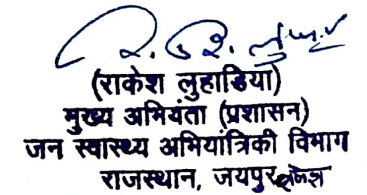 (राकेश लुहाडिया)
मुख्य अभियंता (प्रशासन)
जन स्वास्थ्य अभियांत्रिकी विभाग
राजस्थान, जयपुर